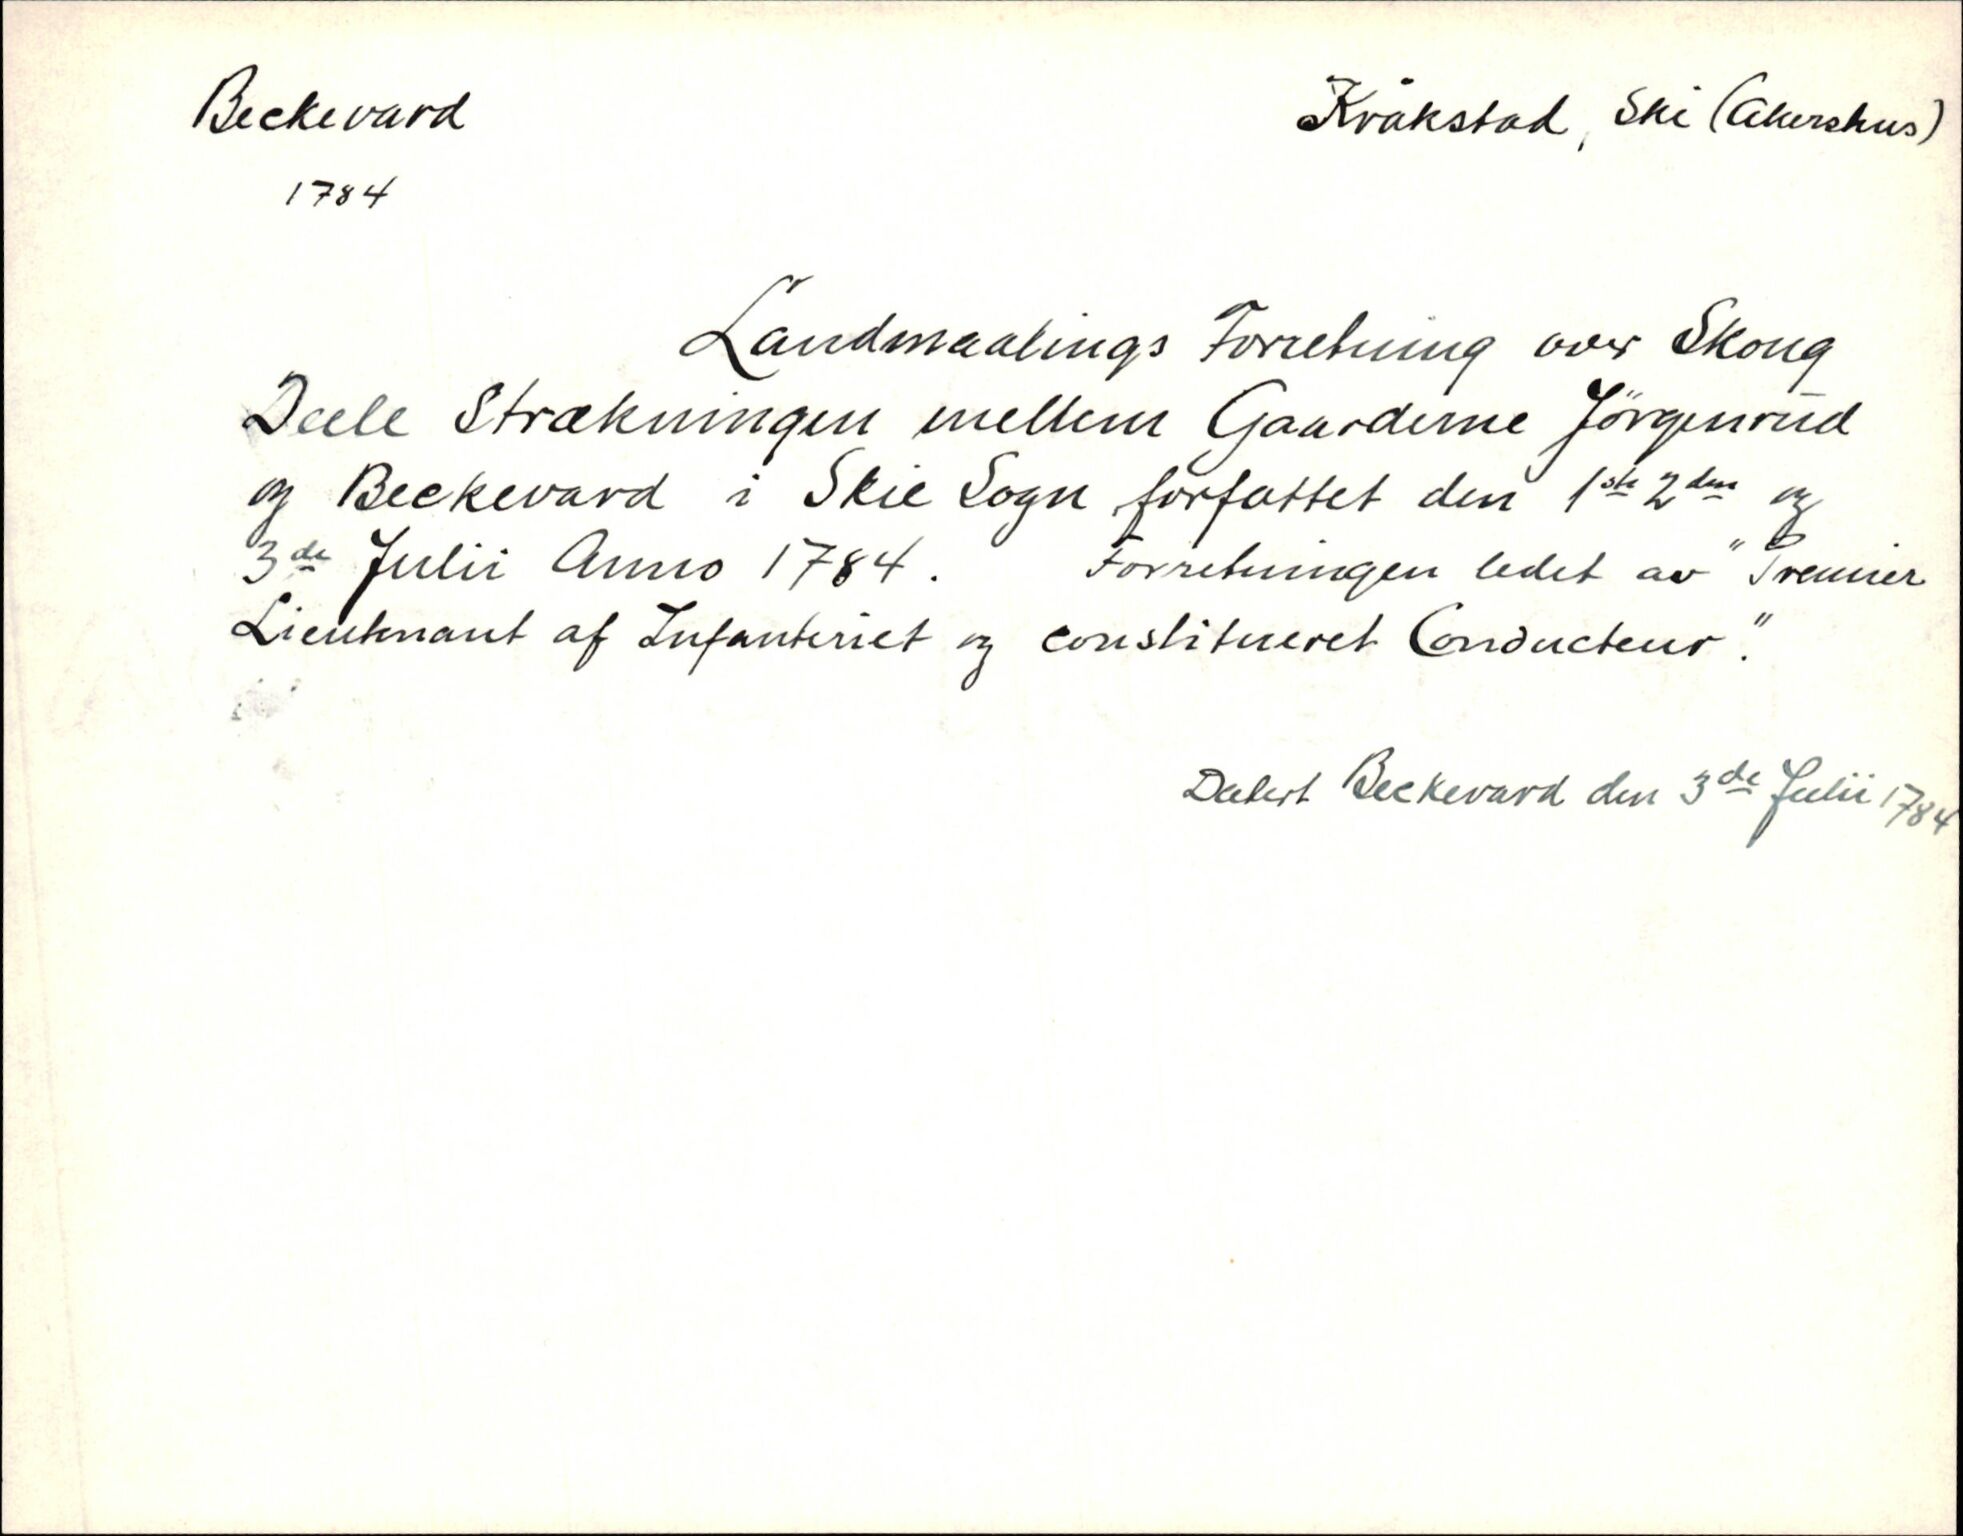 Beckevard
Kråkstad, Ski (Akershus)
1784
Landmaalings Forretning over Skoug
Deele Strækningen mellem Gaarderne Jörgenrud
og Beckevard i Skie Sogn forfattet den 1ste 2den og
3de Julii Anno 1784. Forretningen ledet av "Premier
Lieutenant af Infanteriet og constitueret Conducteur".
Datert Beckevard den 3de Julii 1784